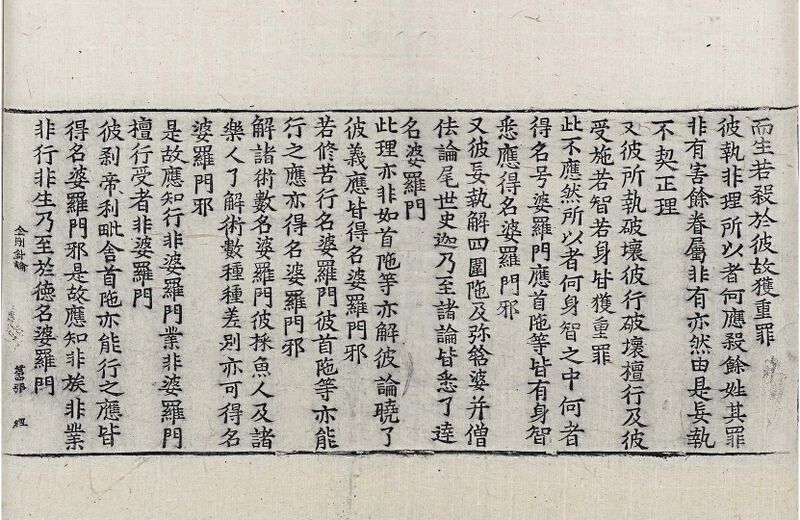 而生若殺於彼故獲重罪
彼執非理所以者何應殺餘姓其罪
非有害餘眷屬非有亦然由是妄執
不契正理
又彼所執破壞彼行破壞檀行及彼
受施若智若身皆獲重罪
此不應然所以者何身智之中何者
得名号婆羅門應首陁等皆有身智
悉應得名婆羅門邪
又彼妄執解四圍陁及弥𭣋婆并僧
佉論尾世史迦乃至諸論皆悉了達
名婆羅門
此理亦非如首陁等亦解彼論曉了
彼義應皆得名婆羅門邪
若修苦行名婆羅門彼首陁等亦能
行之應亦得名婆羅門邪
解諸術數名婆羅門彼採魚人及諸
樂人了解術數種種差別亦可得名
婆羅門邪
是故應知行非婆羅門業非婆羅門
檀行受者非婆羅門
彼剎帝利毗舍首陁亦能行之應皆
得名婆羅門邪是故應知非族非業
非行非生乃至於德名婆羅門
金剛針論